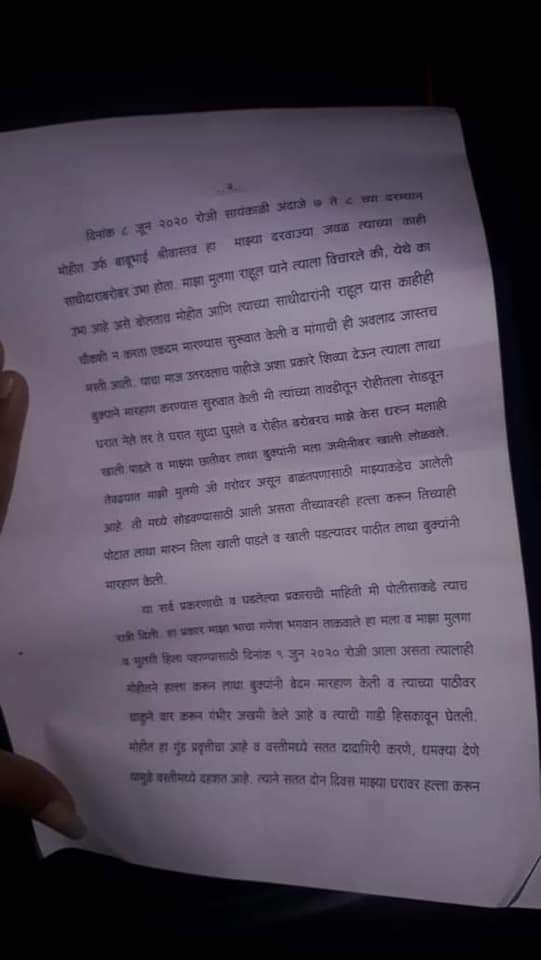 ..२..
दिनांक ८ जून २०२० रोजी सायंकाळी अंदाजे ७ ते ८ च्या दरम्यान
मोहीत उर्फ बाबूभाई श्रीवास्तव हा माझ्या दरवाज्या जवळ त्याच्या काही
साथीदाराबरोबर उभा होता. माझा मुलगा राहूल याने त्याला विचारले की, येथे का
उभा आहे असे बोलताच मोहीत आणि त्याच्या साथीदारांनी राहूल यास काहीही
चौकशी न करता एकदम मारण्यास सुरूवात केली व मांगाची ही अवलाद जास्तच
मस्ती आली. याचा माज उतरवलाच पाहीजे अशा प्रकारे शिव्या देऊन त्याला लाथा
बुक्याने मारहाण करण्यास सुरुवात केली मी त्याच्या तावडीतून रोहीतला सोडवून
घरात नेले तर ते घरात सुध्दा घुसले व रोहीत बरोबरच माझे केस धरुन मलाही
खाली पाडले व माझ्या छातीवर लाथा बुक्यांनी मला जमीनीवर खाली लोळवले.
तेवढ्यात माझी मुलगी जी गरोदर असून बाळंतपणासाठी माझ्याकडेच आलेली
आहे. ती मध्ये सोडवण्यासाठी आली असता तीच्यावरही हल्ला करून तिच्याही
पोटात लाथा मारुन तिला खाली पाडले व खाली पडल्यावर पाठीत लाथा बुक्यांनी
मारहाण केली.
या सर्व प्रकरणाची व घडलेल्या प्रकाराची माहिती मी पोलीसाकडे त्याच
रात्री दिली. हा प्रकार माझा भाचा गणेश भगवान ताकवाले हा मला व माझा मुलगा
व मुलगी हिला पहाण्यासाठी दिनांक ९ जून २०२० रोजी आला असता त्यालाही
मोहीतने हल्ला करून लाथा बुक्यांनी बेदम मारहाण केली व त्याच्या पाठीवर
चाकूने वार करून गंभीर जखमी केले आहे व त्याची गाडी हिसकावून घेतली.
मोहीत हा गुंड प्रवृत्तीचा आहे व वस्तीमध्ये सतत दादागिरी करणे, धमक्या देणे
यामुळे वस्तीमध्ये दहशत आहे. त्याने सतत दोन दिवस माझ्या घरावर हल्ला करून